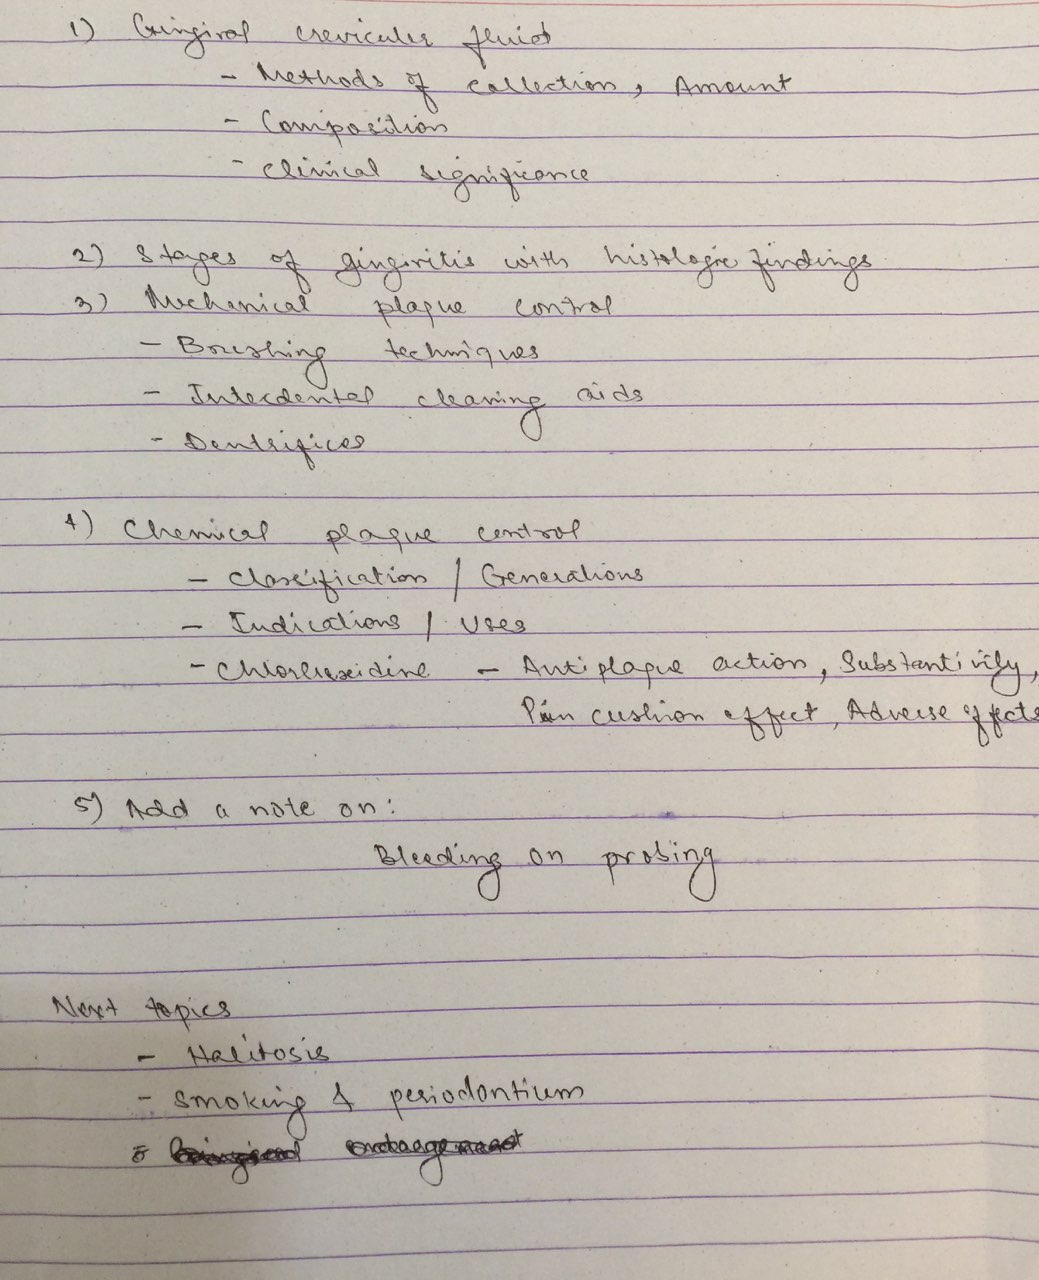 1) Gingival crevicular fluid
- Methods of collection, Amount
- Composition
- Clinical significance
2) Stages of gingivitis with histologic findings
3) Mechanical plaque control
- Brushing techniques
- Interdental cleaning aids
- Dentrifices
4) Chemical plaque control
- Classification / Generations
- Indications / Uses
- Chlorhexidine - Antiplaque action, Substantivity,
Pin cushion effect, Adverse effects
5) Add a note on:
Bleeding on probing
Next topics
- Halitosis
- Smoking & periodontium